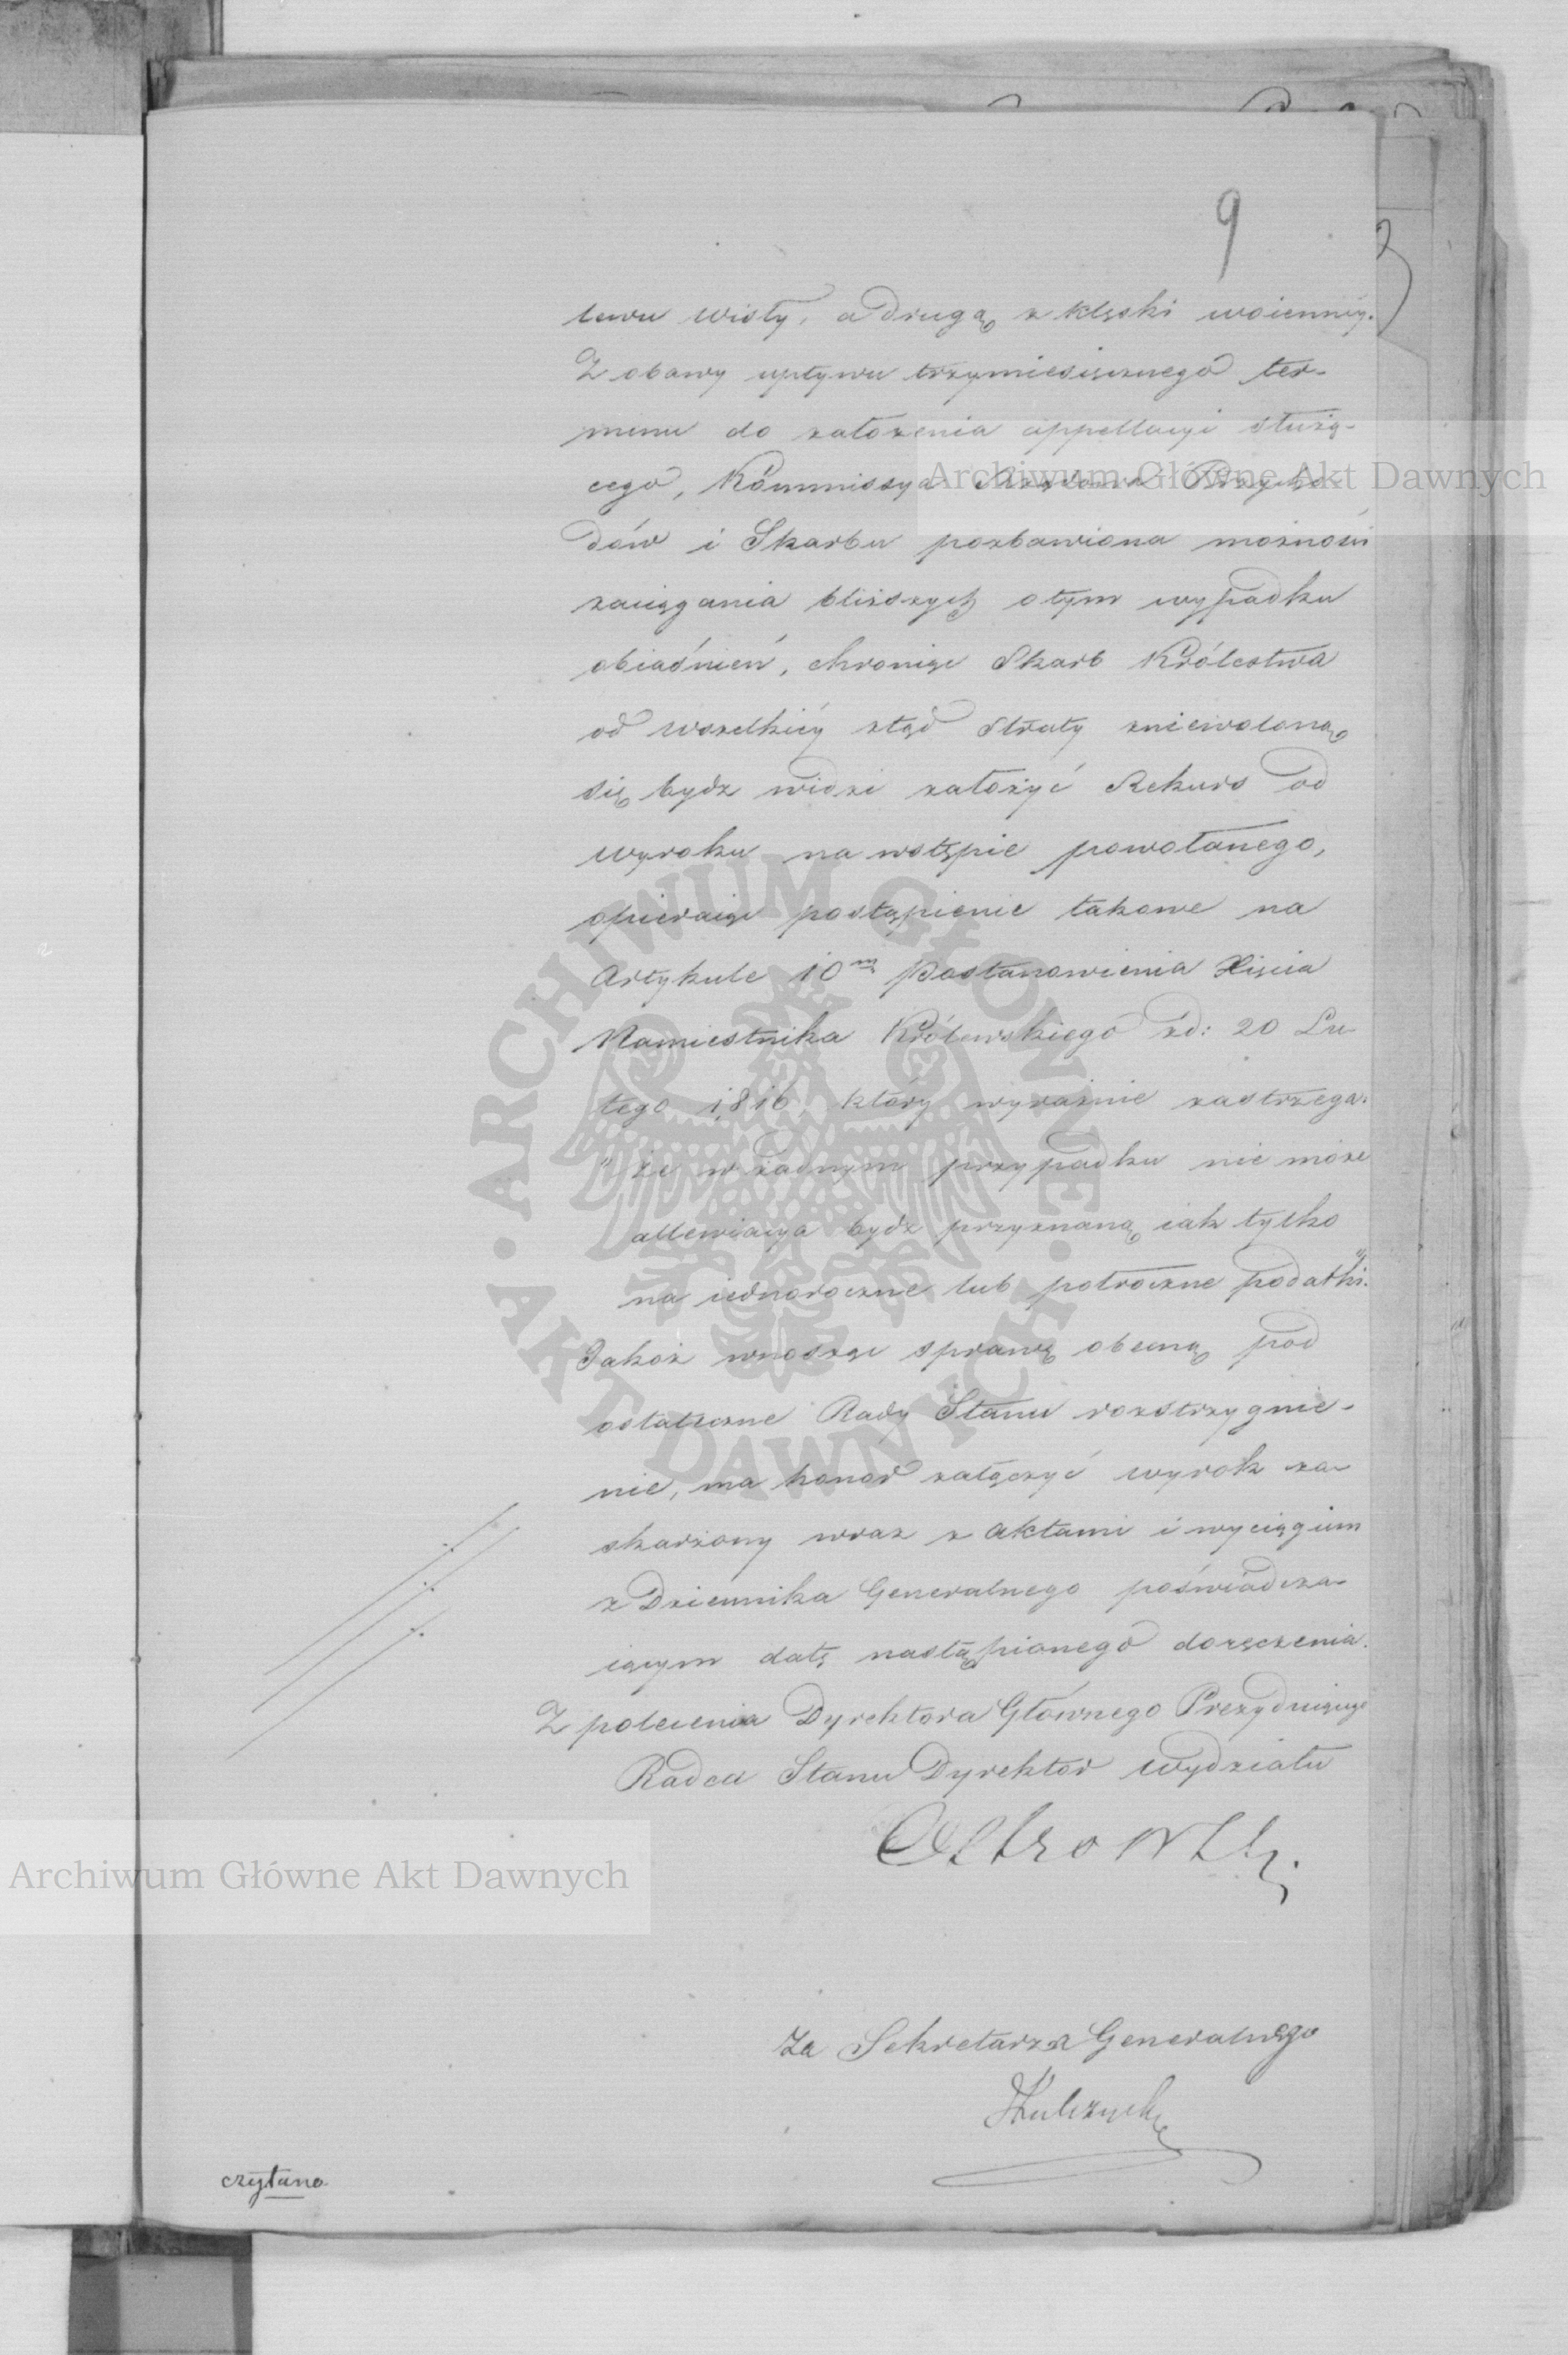 9
lewu wisły, a drugą z klęski woienney.
Z obawy upływu trzymiesięcznego ter-
minu do założenia appellacyi służą-
cego, Kommissya Rządowa Przycho-
dów i Skarbu pozbawiona możności
zaciągania bliższych o tym wypadku
obiaśnień, chroniąc Skarb Królestwa
od wszelkiey ztąd straty zniewoloną
się bydz widzi założyć Rekurs od
wyroku na wstępie powołanego,
opieraiąc postąpienie takowe na
Artykule 10m Postanowienia Xięcia
Namiestnika Królewskiego zd: 20 Lu
tego 1816 który wyraźnie zastrzega.
"że w żadnym przypadku nie może
allewiacya bydz przyznaną iak tylko
na iednoroczne lub półroczne podatki."
Jakoż wnosząc sprawę obecną pod
ostateczne Rady Stanu rozstrzygnie-
nie, ma honor załączyć wyrok za-
skarżony wraz z aktami i wyciągiem
z Dziennika Generalnego poświadcza-
iącym datę nastąpionego doręczenia.
Z polecenia Dyrektora Głównego Prezyduiącego
Radca Stanu Dyrektor Wydziału
Ostrowski.
Za Sekretarza Generalnego
czytano.
Archiwum Główne Akt Dawnych
Archiwum Główne Akt Dawnych
ARCHIWUM GŁÓWNE AKT DAWNYCH